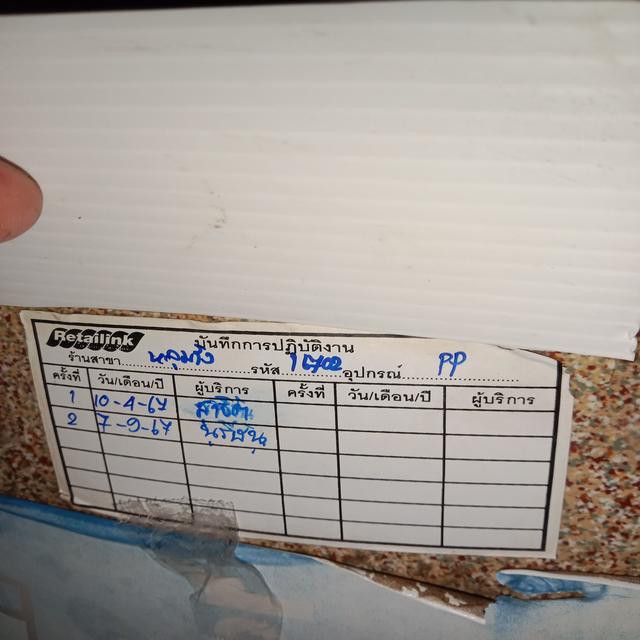 Retailink
บันทึกการปฏิบัติงาน
ร้านสาขา หลุมรัง รหัส 16702 อุปกรณ์ PP
ครั้งที่ วัน/เดือน/ปี ผู้บริการ ครั้งที่ วัน/เดือน/ปี ผู้บริการ
1 10-4-67
2 7-9-67